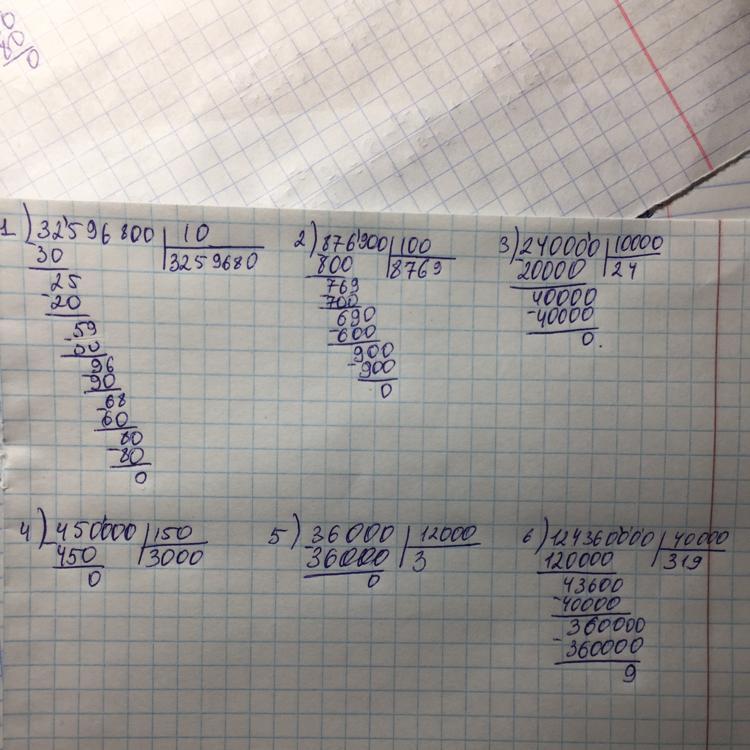 0
80
0
1) 32596800 | 10
30 | 3259680
25
- 20
59
- 50
96
- 90
68
- 60
80
- 80
0
2) 876900 | 100
800 | 8769
769
- 700
690
- 600
900
- 900
0
3) 240000 | 10000
- 20000 | 24
40000
- 40000
0.
4) 450000 | 150
- 450 | 3000
0
5) 36000 | 12000
36000 | 3
0
6) 124360000 | 40000
120000 | 319
43600
- 40000
360000
- 360000
9